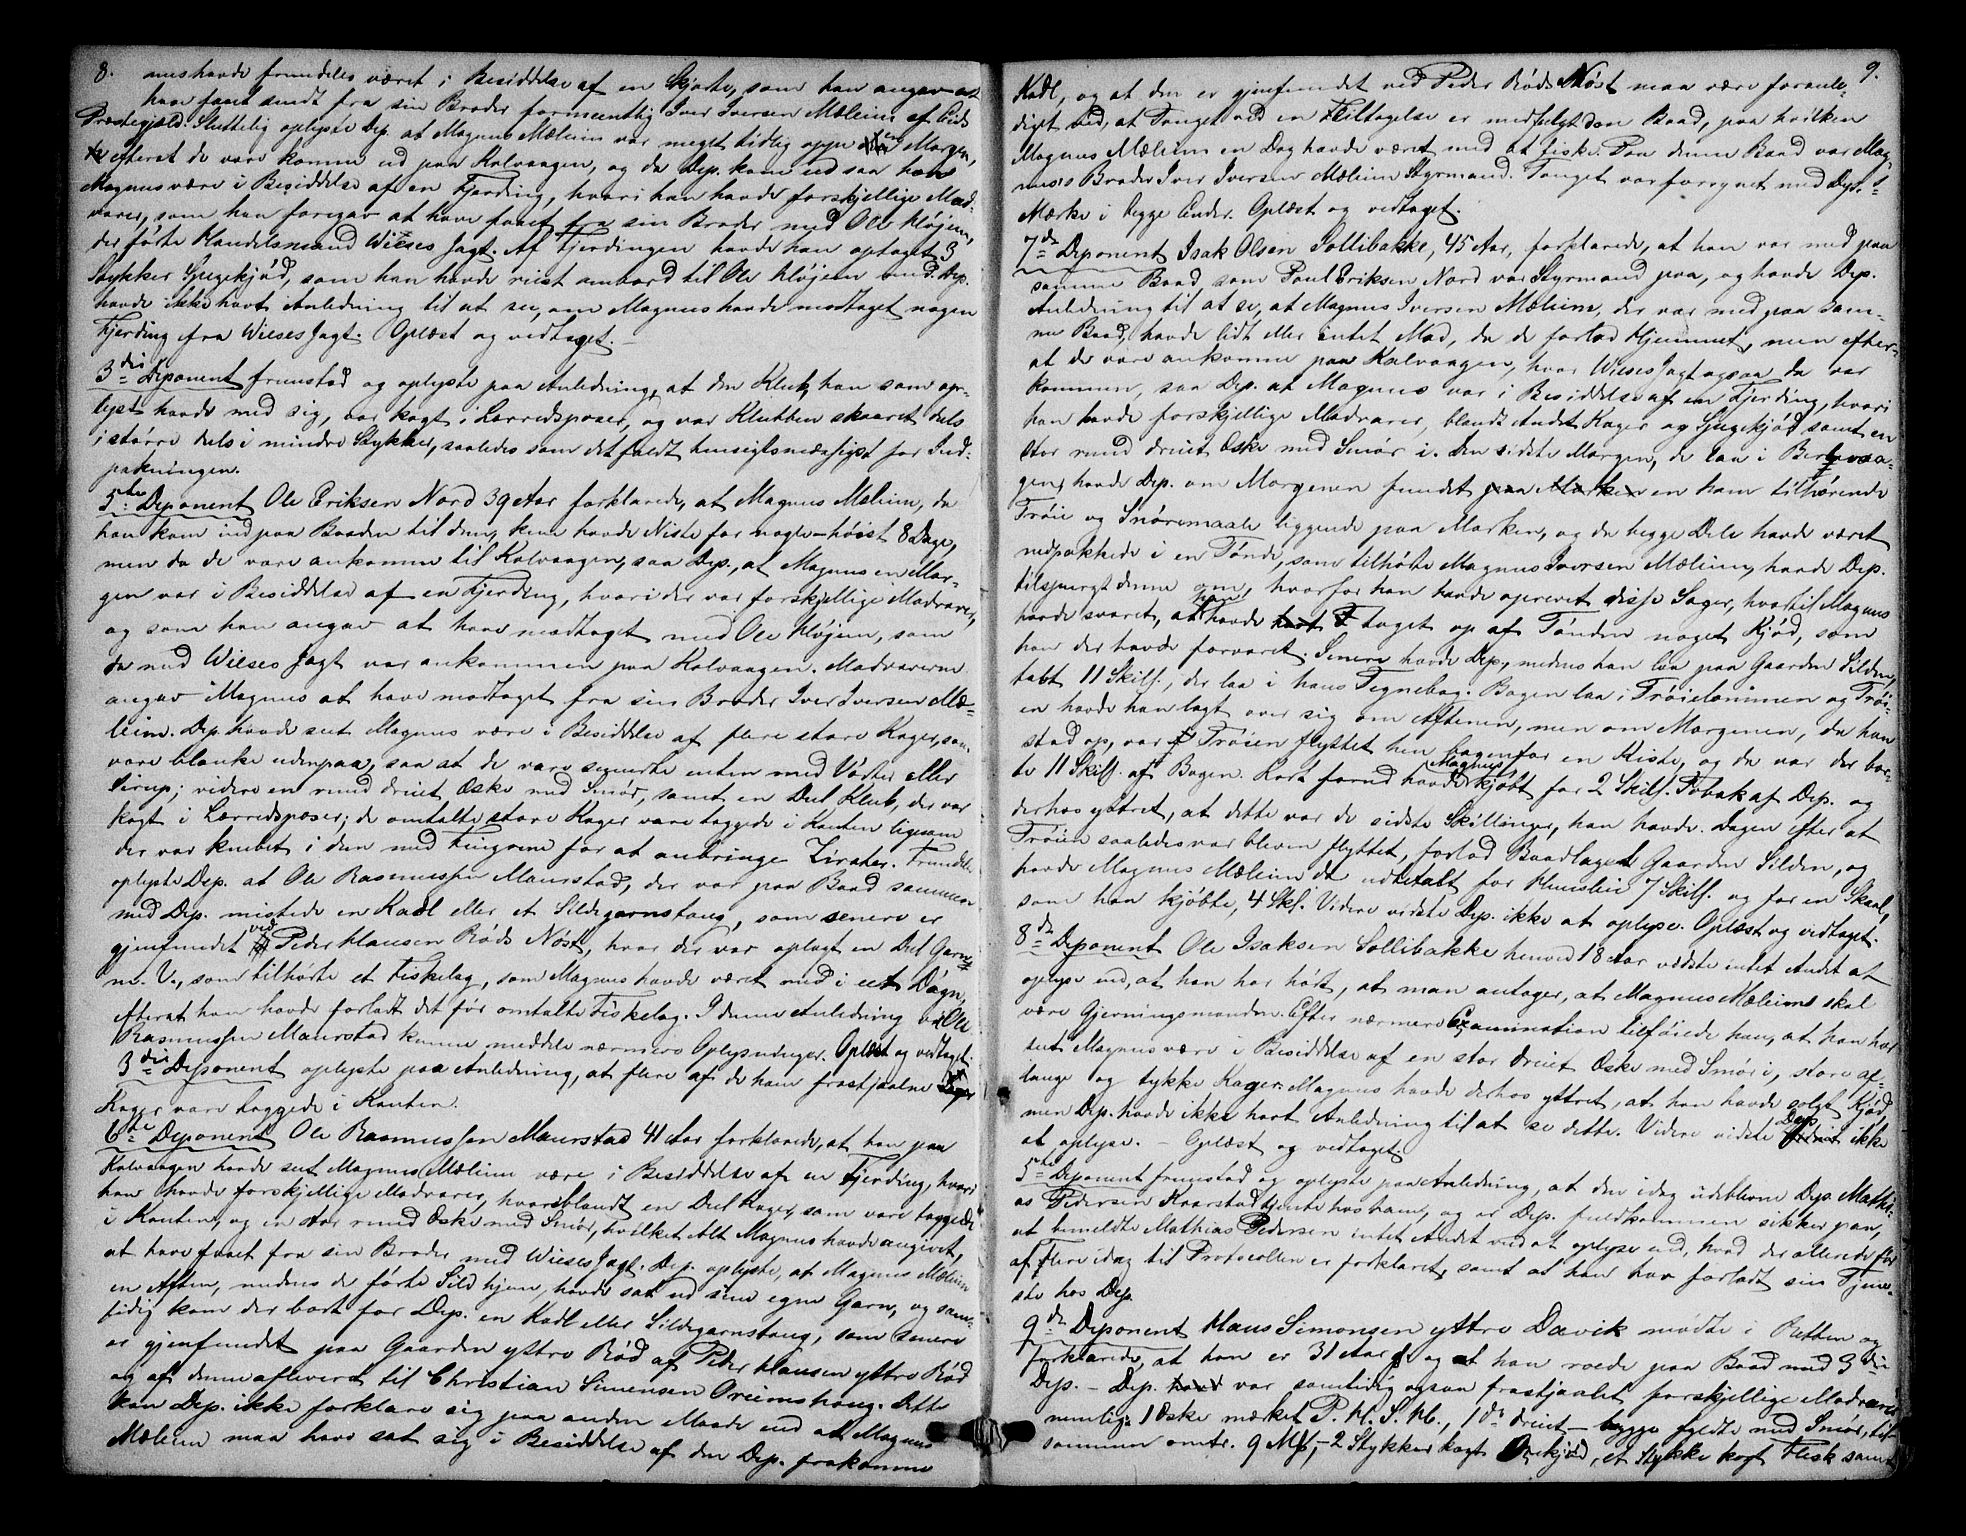 8.
nus havde fremdeles været i Besiddelse af en Skjorte, som han angav at
have faaet sendt fra sin Broder formeentlig Iver Iversen Mæleim af Eids
Præstegjæld. Sluttelig oplyste Dep. at Magnus Mæleim var meget tidlig oppe en Morgen,
efterat de vare komne ud paa Kalvaagen, og da Dep. kom ud saa han
Magnus være i Besiddelse af en Fjerding, hvori han havde forskjellige Mad-
varer, som han foregav at have faaet fra sin Broder med Ole Kløjem,
der førte Handelsmand Wieses Jagt. Af Fjerdingen havde han optaget 3
Stykker Spegekjød, som han havde reist ombord til Ole Kløjem med. Dep.
havde ikke havt Anledning til at see, om Magnus havde modtaget nogen
Fjerding fra Wieses Jagt. Oplæst og vedtaget.
3die Deponent fremstod og oplyste paa Anledning, at den Klub, han som op-
lyst havde med sig, var kogt i Lærredsposer, og var Klubben skaaret dels
i større dels i mindre Stykker, saaledes som det faldt hensigtsmæssigst for Ind-
pakningen.
5te Deponent Ole Eriksen Nord 39 Aar forklarede, at Magnus Mæleim, da
han kom ind paa Baaden til dem, kun havde Niste for nogle – høist 8 Dage,
men da de vare ankomne til Kalvaagen, saa Dep., at Magnus en Mor-
gen var i Besiddelse af en Fjerding, hvori der var forskjellige Madvarer,
og som han angav at have modtaget med Ole Kløjem, som
da med Wieses Jagt var ankommen paa Kalvaagen. Madvarerne
angav Magnus at have modtaget fra sin Broder Iver Iversen Mæ-
leim. Dep. havde seet Magnus være i Besiddelse af flere store Kager, som
vare blanke udenpaa, saa at de vare smurte enten med Vørter eller
Sirup; videre en rund dreiet Oske med Smør, samt en Del Klub, der var
kogt i Lærredsposer; de omtalte store Kager vare taggede i Kanten ligesom
der var knebet i dem med Fingrene for at anbringe Zirater. Fremdeles
oplyste Dep. at Ole Rasmussen Maurstad, der var paa Baad sammen
med Dep. mistede en Kadl eller et Sildegarnstaug, som senere er
gjenfundet ved Peder Hansen Røds Nøst, hvor der var oplagt en Del Garn
m. V., som tilhørte et Fiskelag, som Magnus havde været med i eet Døgn,
efterat han havde forladt det før omtalte Fiskelag. I denne Anledning vil Ole
Rasmussen Maurstad kunne meddele nærmere Oplysninger. Oplæst og vedtaget.
3die Deponent oplyste paa Anledning, at flere af de ham frastjaalne
Kager vare taggede i Kanten.
6te Deponent Ole Rasmussen Maurstad 41 Aar forklarede, at han paa
Kalvaagen havde seet Magnus Mæleim være i Besiddelse af en Fjerding, hvori
han havde forskjellige Madvarer, hvoriblandt en Del Kager, som vare taggede
i Kanten, og en stor rund Oske med Smør, hvilket Alt Magnus havde angivet,
at have faaet fra sin Broder med Wieses Jagt. Dep. oplyste, at Magnus Mæleim
en Aften, medens de førte Sild hjem, havde sat ud sine egne Garn, og sam-
tidig kom der bort for Dep. en Kadl eller Sildegarnstaug, som senere
er gjenfundet paa Gaarden yttre Rød af Peder Hansen yttre Rød
og af denne afleveret til Christian Simensen Oreimshaug. Dette
kan Dep. ikke forklare sig paa anden Maade end at Magnus
Mæleim maa have sat sig i Besiddelse af den Dep. frakomne
9.
Kadl, og at den er gjenfundet ved Peder Røds Nøst maa være foranle-
diget ved, at Tauget ved en Feiltagelse er medfulgt den Baad, paa hvilken
Magnus Mæleim en Dag havde været med at fiske. Paa denne Baad var Mag-
nus's Broder Iver Iversen Mæleim Styrmand. Tauget var forsynet med Dep.s
Mærke i begge Ender. Oplæst og vedtaget.
7de Deponent Isak Olsen Sollibakke, 45 Aar, forklarede, at han var med paa
samme Baad som Poul Eriksen Nord var Styrmand paa, og havde Dep.
Anledning til at se, at Magnus Iversen Mæleim, der var med paa sam-
me Baad, havde lidt eller intet Mad, da de forlod Hjemmet, men efter
at de vare ankomne paa Kalvaagen, hvor Wieses Jagt ogsaa da var
kommen, saa Dep. at Magnus var i Besiddelse af en Fjerding, hvori
han havde forskjellige Madvarer, blandt Andet Kager og Spegekjød samt en
stor rund dreiet Oske med Smør i. Den sidste Morgen, de laa i Berlevaa-
gen, havde Dep. om Morgenen fundet paa Marken en ham tilhørende
Trøie og Snøremaale liggende paa Marken, og da begge Dele havde været
nedpakkede i en Tønde, som tilhørte Magnus Iversen Mæleim, havde Dep.
tilspurgt denne om, hvorfor han havde oprevet disse Sager, hvortil Magnus
havde svaret, at han havde taget op af Tønden noget Kjød, som
han der havde forvaret. Senere havde Dep., medens han laa paa Gaarden Silden,
tabt 11 Skill., der laa i hans Tegnebog. Bogen laa i Trøielommen og Trøi-
en havde han lagt over sig om Aftenen, men om Morgenen, da han
stod op, var Trøien flyttet hen bagenfor en Kiste, og da var der bor-
te 11 Skill. af Bogen. Kort forud havde Magnus kjøbt for 2 Skill. Tobak af Dep. og
derhos yttret, at dette var de sidste Skillinger, han havde. Dagen efter at
Trøien saaledes var bleven flyttet, forlod Baadlaget Gaarden Silden, og
havde Magnus Mæleim da udbetalt for Huusleie 7 Skill. og for en Skaal,
som han kjøbte, 4 Sk. Videre vidste Dep. ikke at oplyse. Oplæst og vedtaget.
8de Deponent Ole Isaksen Sollibakke henved 18 Aar vidste intet Andet at
oplyse end, at han har hørt, at man antager, at Magnus Mæleim skal
være Gjerningsmanden. Efter nærmere Examination tilføiede han, at han har
seet Magnus være i Besiddelse af en stor dreiet Oske med Smør i, store af-
lange og tykke Kager. Magnus havde derhos yttret, at han havde solgt Kjød,
men Dep. havde ikke havt Anledning til at se dette. Videre vidste Dep. ikke
at oplyse. – Oplæst og vedtaget.
5te Deponent fremstod og oplyste paa Anledning, at den idag udeblevne Dep. Mathi-
as Pedersen Kaarstad tjente hos ham, og er Dep. fuldkommen sikker paa,
at bemeldte Mathias Pedersen intet Andet ved at oplyse end, hvad der allerede før
af flere idag til Protocollen er forklaret, samt at han har forladt sin Tjene-
ste hos Dep.
9de Deponent Hans Simonsen yttre Davik mødte i Retten og
forklarede, at han er 31 Aar og at han roede paa Baad med 3die
Dep. – Dep. havd var samtidig ogsaa frastjaalet forskjellige Madvarer
nemlig 1 Oske mærket P. H. S. H., 1 do dreiet – begge fyldte med Smør, til-
sammen omtr. 9 Mk, – 2 Stykker kogt Oxekjød, et Stykke kogt Flesk samt